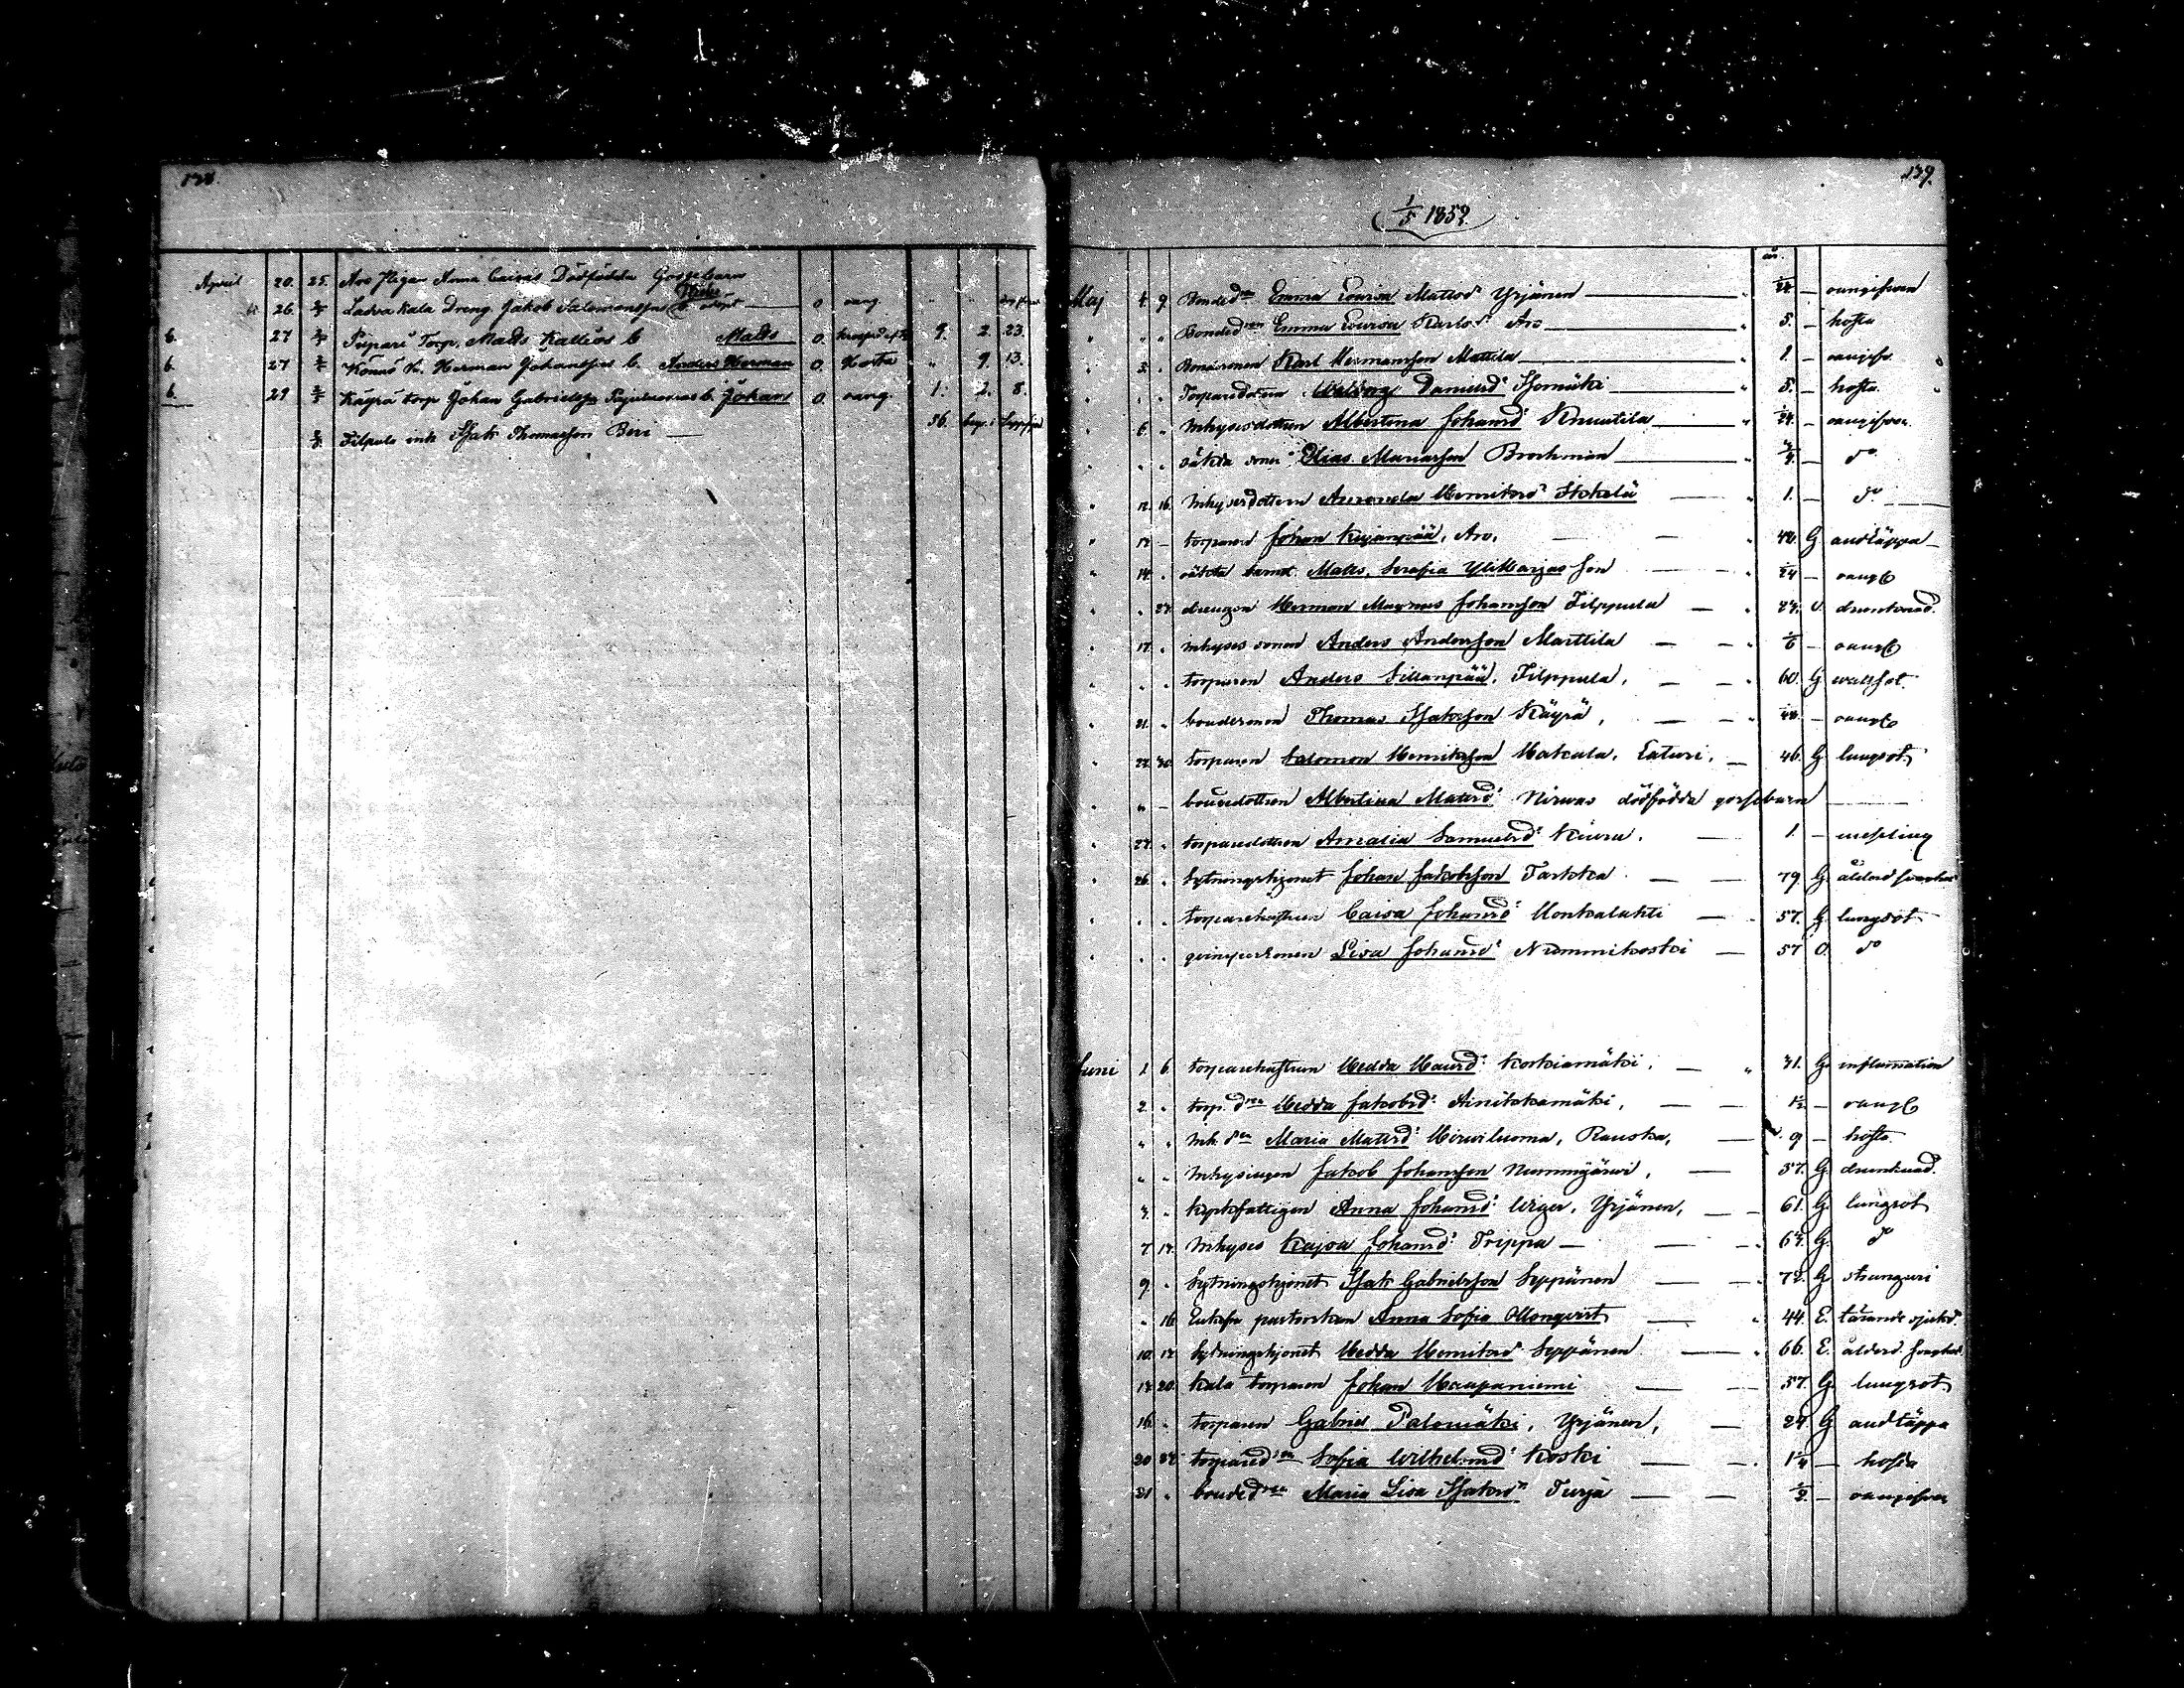 138.
April 20. 25. Aro Pigan Anna Caisas Dödfödda Gossebarn
26. 2/5 Ladva kala Dreng. Jakob Salomonssons 0 oang.
6. 27 2/5 Pupari Torp. Matts Kallios b Matts 0 9. 2. 23.
6. 27 2/5 Könnö B. Herman Johanssons b. Anders Herman 0 Hosta " 9. 13.
6. 29 Käyrä torp Johan Gabrielss b. Johan 0. oang. 1. 2. 8.
Filpula inh Isak Thomasson Beri — 56.
139.
(1/5 1852)
år.
Maj 1. 9. Bonded:en Emma Lovisa Mattsd:r Yrjänen — 1/24 — oangifven
" " " Bonded:en Emma Lovisa Karlsd:r Aro — 5. — hosta
" 3. " Bondesonen Karl Hermansson Mattila — 1. — oangifv.
" " " Torparedottren Walborg Danielsd:r Isomäki — 5. — hosta.
" 6. " Inhysesdottren Albertina Johansd:r Knuutila — 1/24. — oangifven
" " " oäkta sonen Elias Mariasson Brockman — — d:o
" 12. 16. Inhysesdottren Henriksd:r Isokelä — 1. — d:o
" 13 — torparen Johan Kujanpää, Aro. — 48. G andtäppa
" 14. " oäkta barnet Matts, Serafia Yliharjas son — 1/24 — oangf
" " 23. drengen Herman Magnus Johansson Filppula — 23. O. drunknad.
" 17. " inhyses sonen Anders Andersson Marttila — 1/6 — oangf
" " " torparen Anders Sillanpää, Filppula, — 60. G wattsot.
" 21. " bondesonen Thomas Isaksson Käyrä, — — oangf
" 22. 30. torparen Salomon Henriksson Hakala, Laturi, — 46. G lungsot.
" " — bondedottren Albertina Mattsd:r Nirwas dödfödda gossebarn —
" 23. " torparedottren Amalia Samuelsd:r Kiwra. — 1. — messling
" 26. " Sytningshjonet Johan Jakobsson Tarkka — 79. G ålderd. svaghet
" " " torparehustrun Caisa Johansd:r Honkalahti — 57. G. lungsot
" " " qvinspersonen Lisa Johansd:r Nummikoski — 57 O. d:o
Juni 1. 6. torparehustrun Hedda Hansd:r Koskiamäki. — 31. G inflammation
2. " torp. d:en Hedda Jakobsd:r Ainikkamäki, — 1 1/2 — oangf
" " Inh. d:en Maria Mattsd:r Hirwiluoma, Rauska, — 9 — hosta.
" " Inhysingen Jakob Johansson Nummijärwi, — 37. G. drunknad.
3. " kyrkofattigen Anna Johansd:r Unger, Yrjänen, — 61. G. lungsot
7. 13. Inhyses Kajsa Johansd:r Trippa — 63. G. d:o
9. " Sytningshjonet Isak Gabrielsson Seppänen — 72. G stranguri
" 16 Enkefru pastorskan Anna Sofia Mongvist — 44. E. tärande sjukd.
10. 13. Sytningshjonet Hedda Henriksd:r Seppänen — 66. E. ålderd. svaghet
13. 20. kala torparen Johan Haapaniemi — 57. G. lungsot
16. " torparen Gabriel Palomäki, Yrjänen, — 29. G andtäppa
20 23. torpared:en Sofia Wilhelmsd:r Koski — 1 1/4 — hosta
21 " bonded:en Maria Lisa Isaksd:r Turja — 1/2. — oangifven